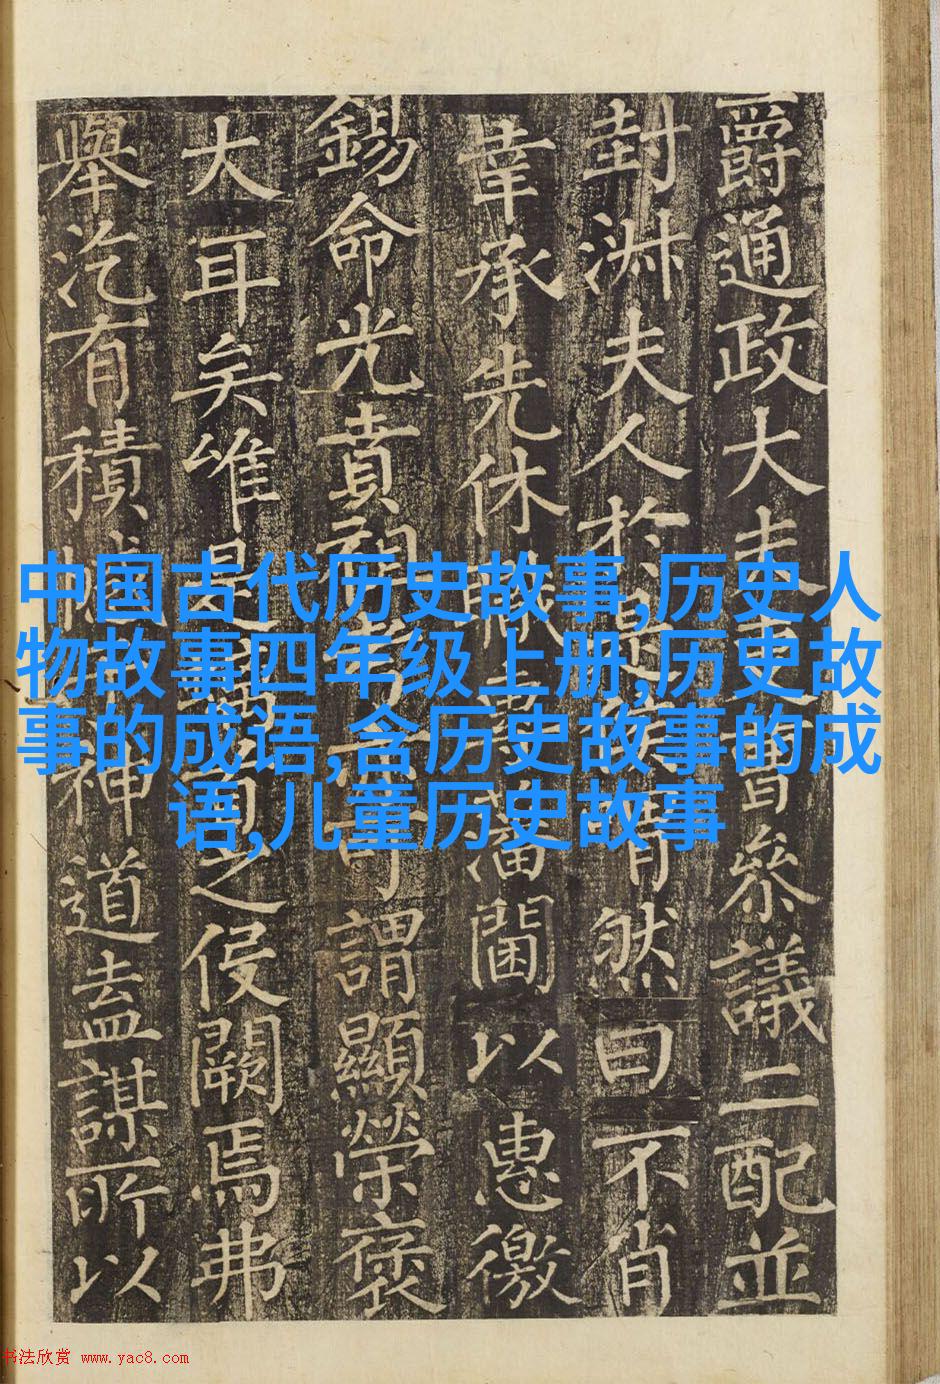 中国古代历史故事,历史人
物故事四年级上册,历史故
事的成语,含历史故事的成
语,儿童历史故事
爵通政大夫吏曹參議二配並
封淑夫人於是然曰不肖
幸承先休藩閫以惠徼
錫命光賁可謂顯榮褒
大耳矣唯是之侵闕焉弗
舉汔有積神道去盖謀所以
书法欣赏 www.yac8.com